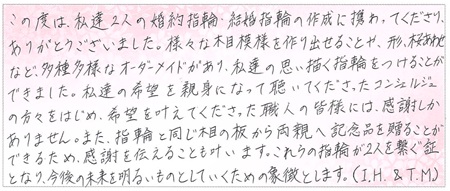 この度は、私達2人の婚約指輪・結婚指輪の作成に携わってくださり、
ありがとうございました。様々な木目模様を作り出せることや、形、桜あわせ
など、多種多様なオーダーメイドがあり、私達の思い描く指輪をつけることが
できました。私達の希望を親身になって聴いてくださったコンシェルジュ
の方々をはじめ、希望を叶えてくださった職人の皆様には、感謝しか
ありません。また、指輪と同じ木目の板から両親へ記念品を贈ることが
できるため、感謝を伝えることも叶います。これらの指輪が2人を繋ぐ証
となり、今後の未来を明るいものとしていくための象徴とします。(I.H. & T.M)